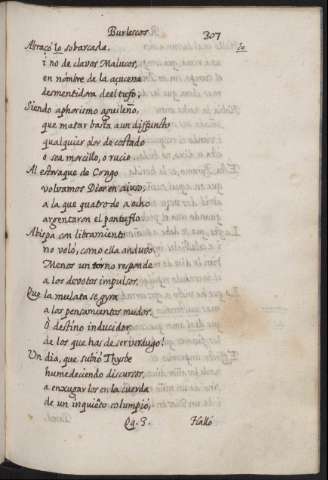 Burlescos.
307
Abraçò lo sobarcada,
i no de clavos Malucos,
en nombre de la açucena
desmentidora del tufo;
Siendo aphorismo aguileño,
que matar basta a un difsuncto
qualquier olor de costado
o sea morcillo, o rucio
Al estoraque de Congo
volvamos Dios en aiuso,
a la que quatro de a ocho
argentaron el pantuflo
Abispa con libramiento
no volò, como ella anduvo
Menos un torno responde
a los devotos impulsos,
Que la mulata se gyra
a los pensamientos mudos.
O destino inducidor
de los que has de ser verdugo!
Un dia, que subió Thysbe
humedeciendo discursos,
a enxugarlos en la cuerda
de un inquieto columpio,
Qq. 3.
Hallò